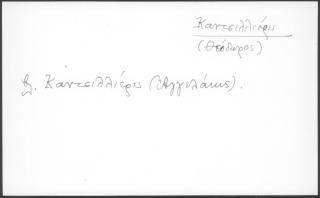 Καντσιλλιέρις
(Θεόδωρος)
βλ. Καντσιλλιέρις (Ἀγγελάκης).